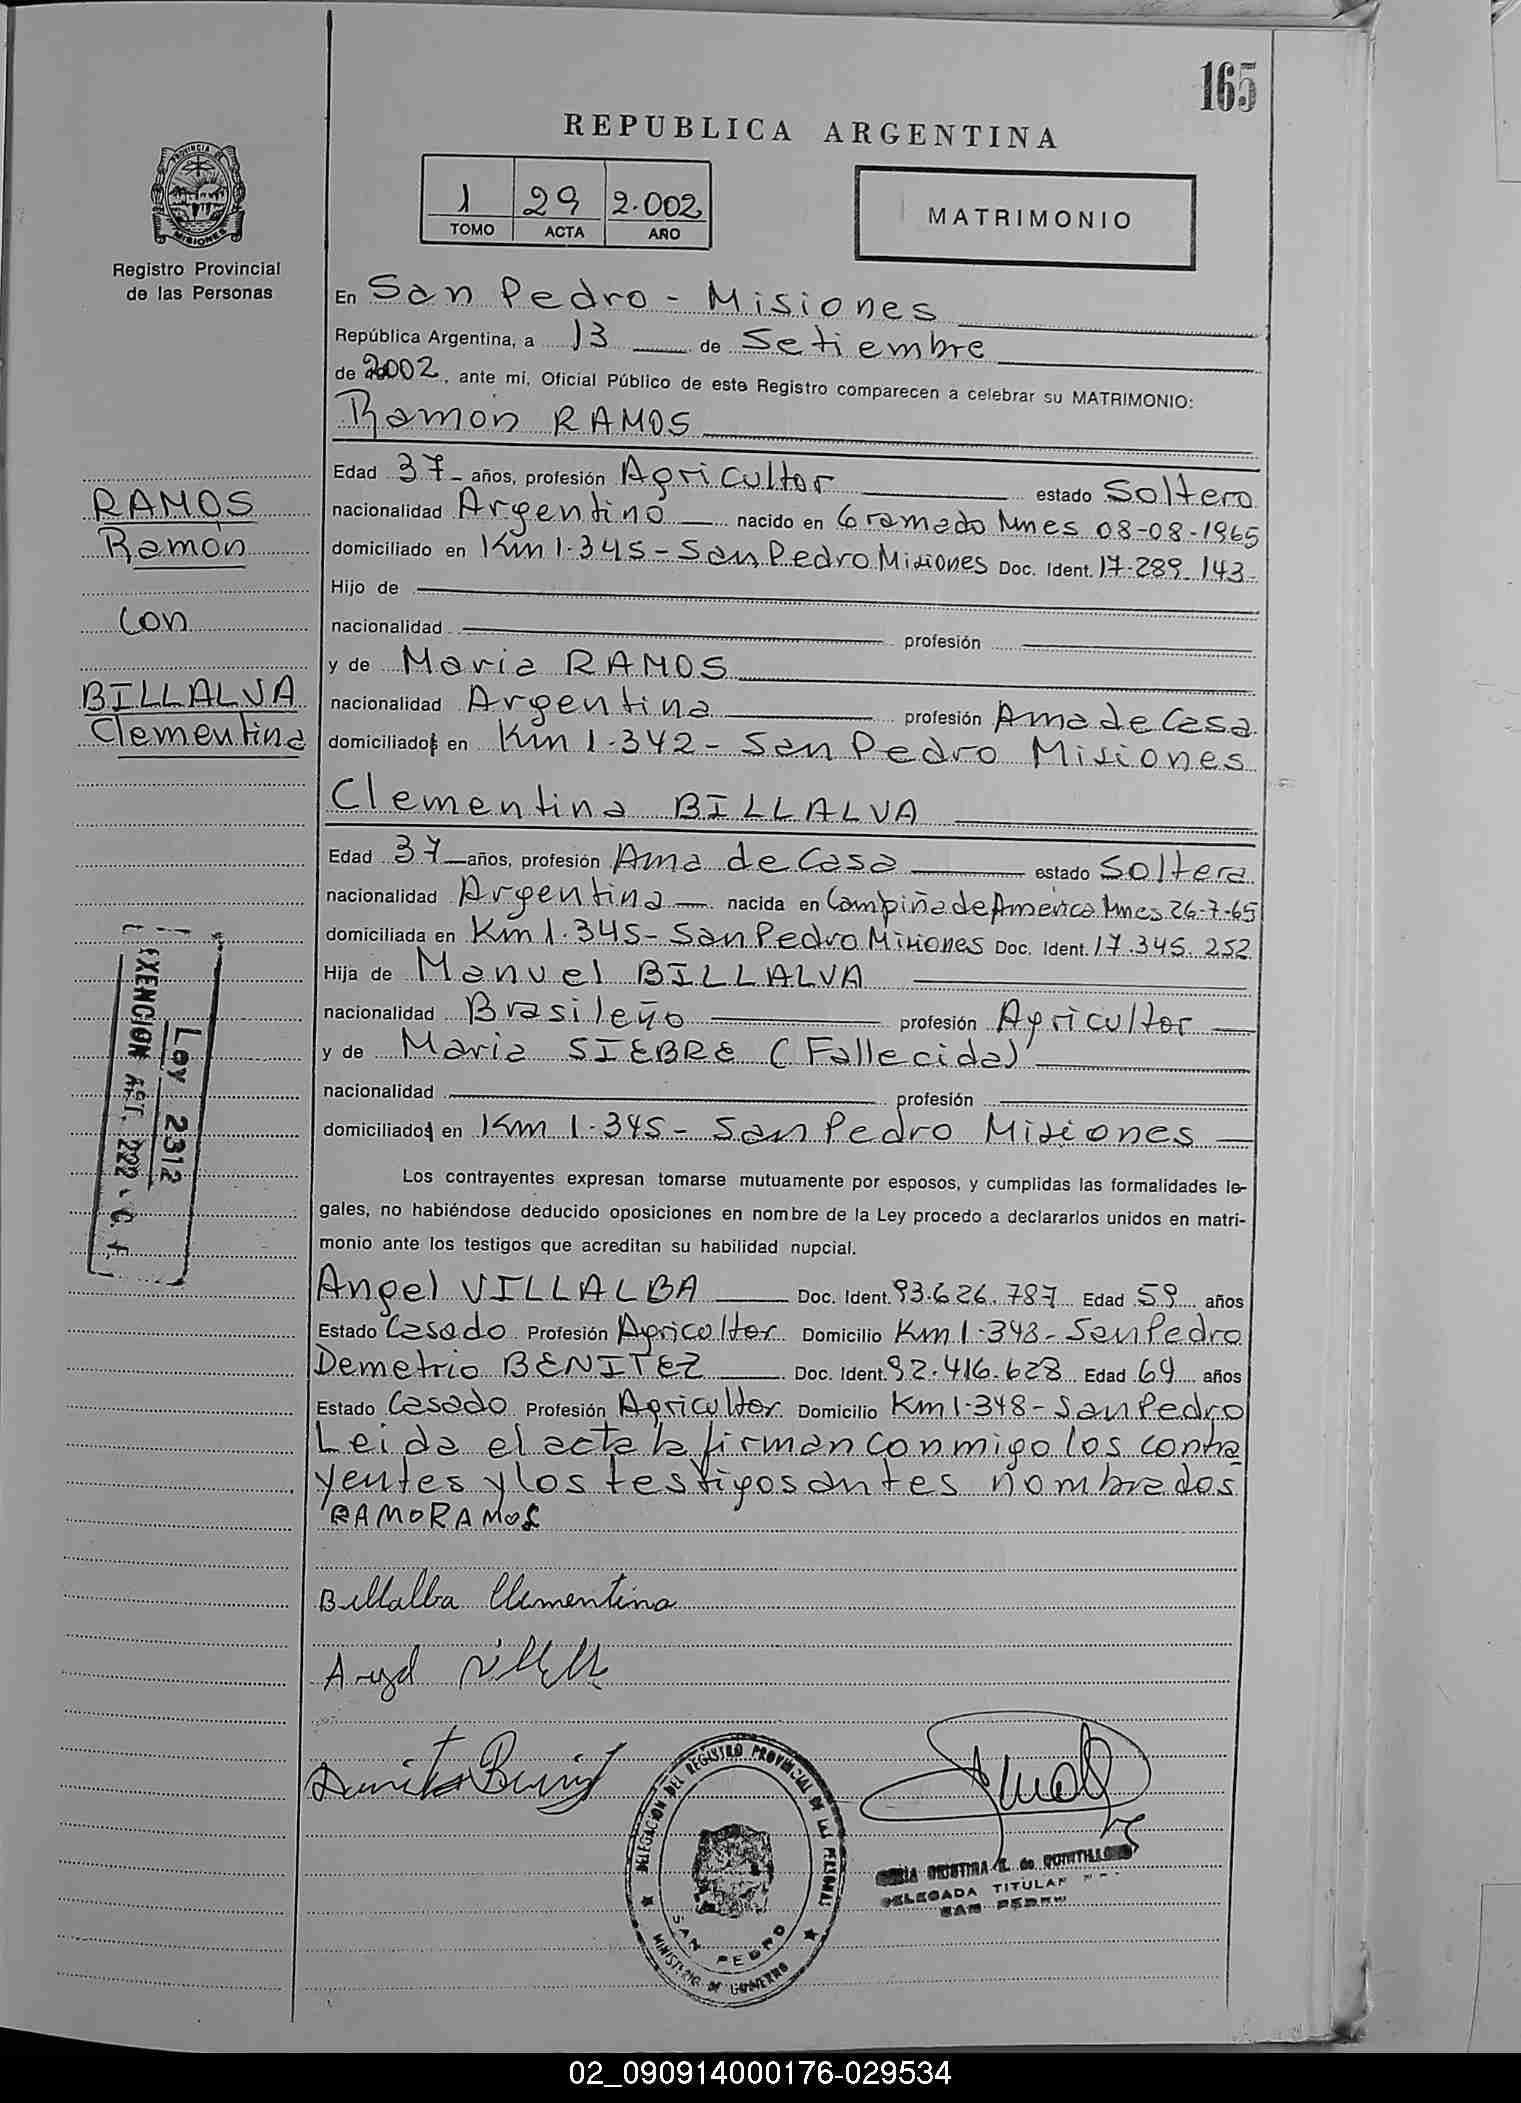 165
REPUBLICA ARGENTINA
1 29 2.002
TOMO ACTA AÑO
MATRIMONIO
PROVINCIA DE MISIONES
Registro Provincial
de las Personas
En San Pedro - Misiones
República Argentina, a 13 de Setiembre
de 2002, ante mí, Oficial Público de este Registro comparecen a celebrar su MATRIMONIO:
Ramón RAMOS
Edad 37 años, profesión Agricultor estado Soltero
nacionalidad Argentino nacido en Gramado Mnes 08-08-1965
domiciliado en Km 1.345 - San Pedro Misiones Doc. Ident. 17.289.143.
Hijo de
nacionalidad profesión
y de Maria RAMOS
nacionalidad Argentina profesión Ama de Casa
domiciliados en Km 1.342 - San Pedro Misiones
Clementina BILLALVA
Edad 37 años, profesión Ama de Casa estado Soltera
nacionalidad Argentina nacida en Campiña de América Mnes 26-7-65
domiciliada en Km 1.345 - San Pedro Misiones Doc. Ident. 17.345.252
Hija de Manuel BILLALVA
nacionalidad Brasileño profesión Agricultor
y de Maria SIEBRE (Fallecida)
nacionalidad profesión
domiciliados en Km 1.345 - San Pedro Misiones
Los contrayentes expresan tomarse mutuamente por esposos, y cumplidas las formalidades le-
gales, no habiéndose deducido oposiciones en nombre de la Ley procedo a declararlos unidos en matri-
monio ante los testigos que acreditan su habilidad nupcial.
Angel VILLALBA Doc. Ident. 93.626.787 Edad 59 años
Estado Casado Profesión Agricoltor Domicilio Km 1.348 - San Pedro
Demetrio BENITEZ Doc. Ident. 92.416.628 Edad 69 años
Estado Casado Profesión Agricultor Domicilio Km 1.348 - San Pedro
Leida el acta la firman conmigo los contra
yentes y los testigos antes nombrados
RAMORAMOS
Billalba Clementina
Angel
RAMOS
Ramón
con
BILLALVA
Clementina
Ley 2312
EXENCION ART. 222 C. f.
DELEGACION DEL REGISTRO PROVINCIAL DE LAS PERSONAS
SAN PEDRO
MINISTERIO DE GOBIERNO
CRISTINA de
DELEGADA TITULAR
SAN PEDRO
02_090914000176-029534